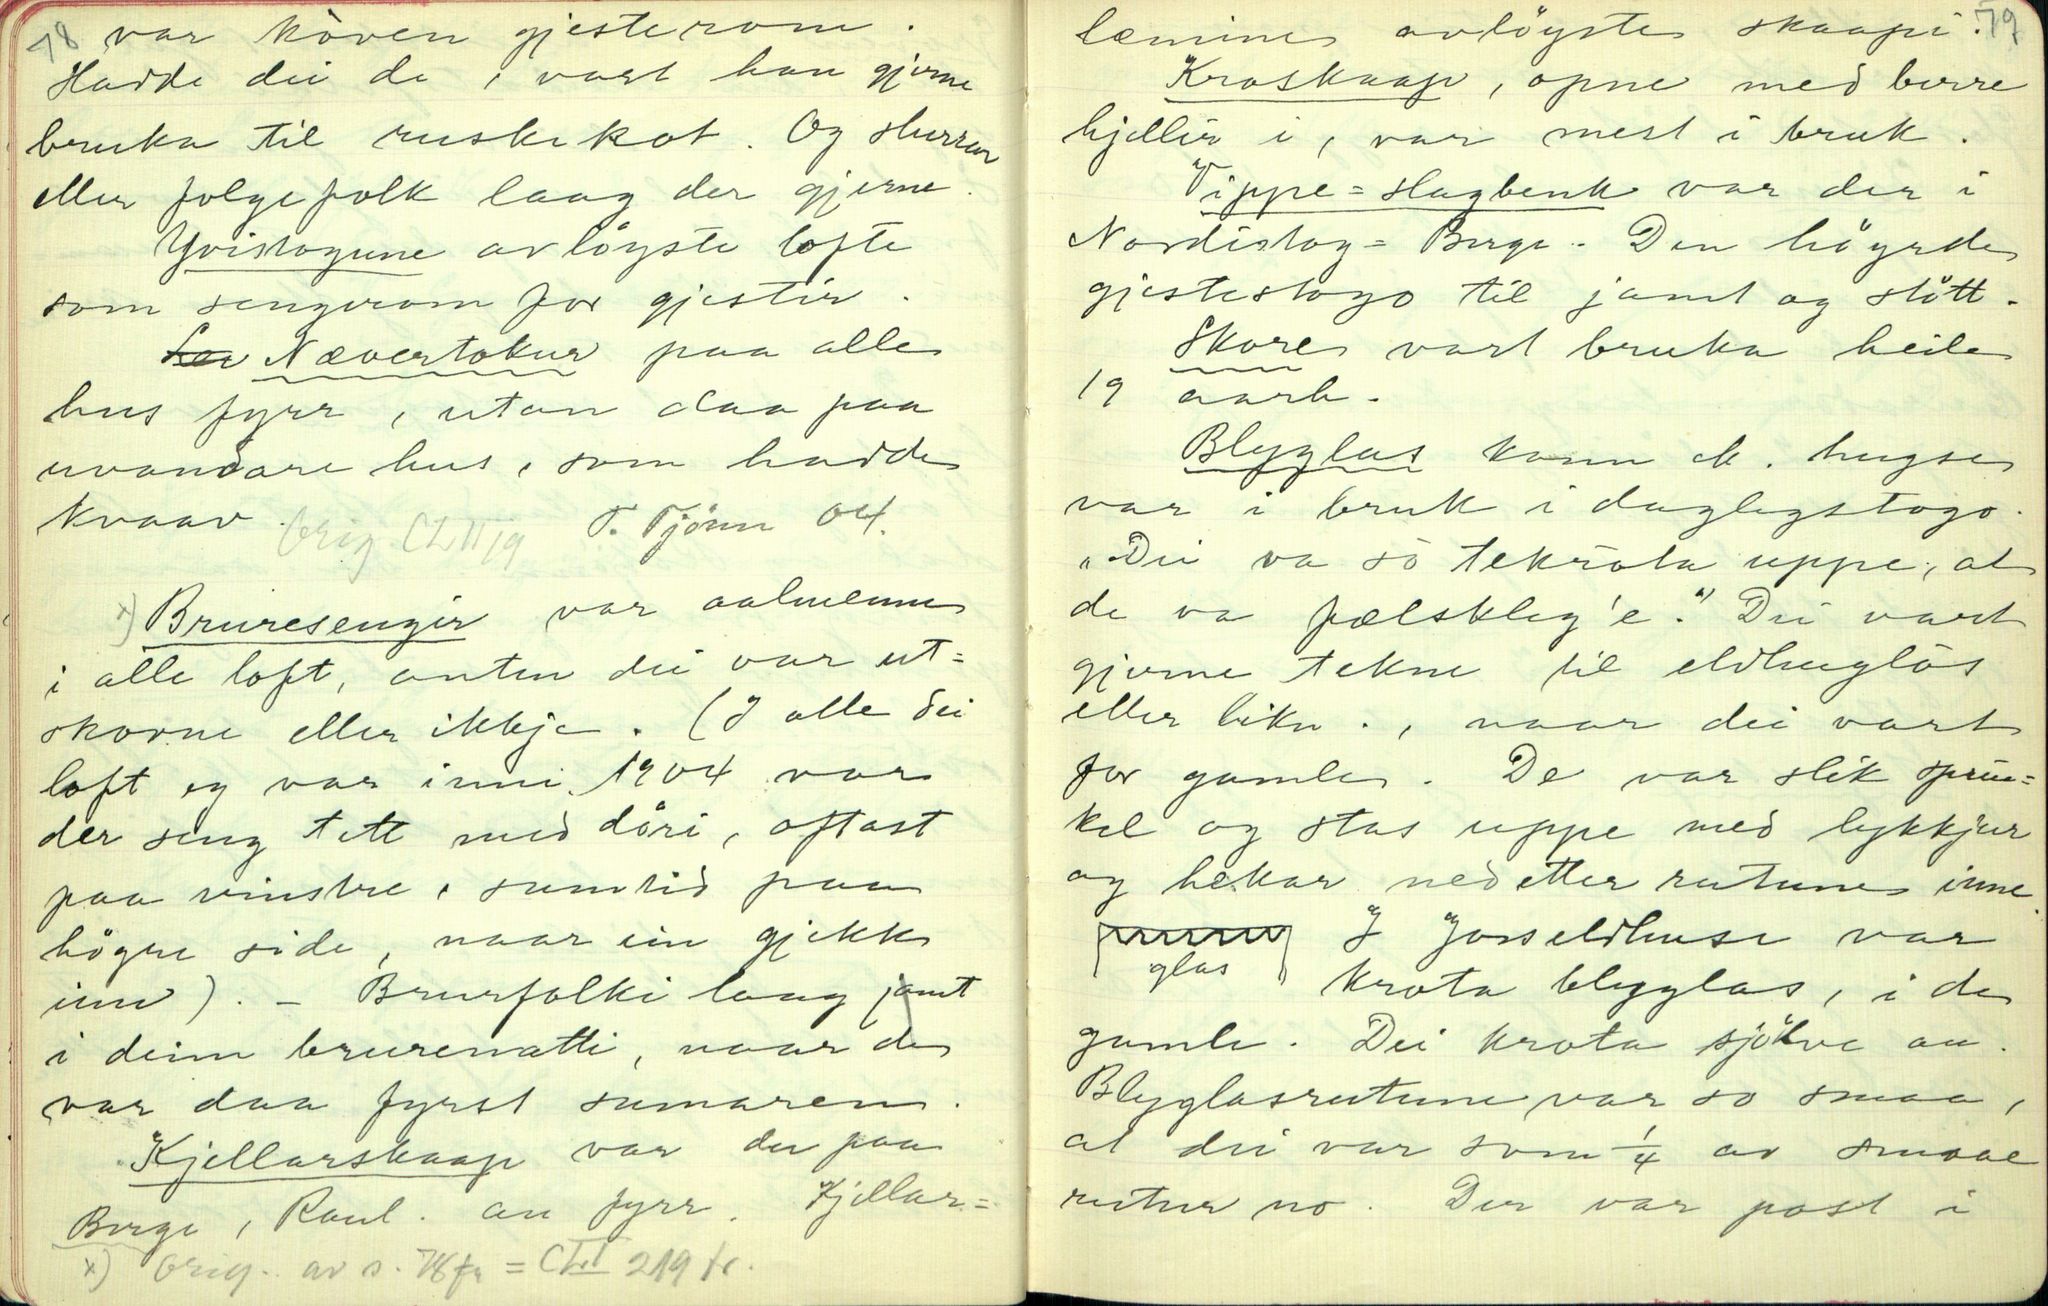 78
var kòven gjesterom.
Hadde dei de, vart han gjerne
bruka til ruskekot. Og
eller folgefolk laag der gjerne.
Yvistogune avlöyste lofte
som sengerom for gjestir.
Nævertokur paa alle
hus fyrr, utan daa paa
uvandare hus, som hadde
kvaav. T. Tjönn 04.
Orig. CLII 19
x) Bruresengir var aalmenne
i alle loft, anten dei var ut=
skorne eller ikkje. (I alle dei
loft eg var inni 1904 var
der seng tett med döri, oftast
paa vinstre, sumtid paa
högre side, naar ein gjekk
inn). – Brurfolki laag jamt
i deim brurenatti, naar de
var daa fyrst sumaren.
Kjellarskaap var der paa
Berge, Raul. au fyrr. Kjellar=
x) Orig. av s. 78 fr = CLII 219 fr.
79
læmine avlöyste skaapi.
Kraskaap, opne med berre
hjellir i, var mest i bruk.
Vippe=slagbenk var der i
Nordistog=Berge. Den höyrde
gjestestogo til jamt og stött.
Skore vart bruka heile
19 aarh.
Blyglas kann ek. hugse
var i bruk i daglegstogo.
"Dei va so tekrota uppe, at
de va fælsklig'e." Dei vart
gjerne tekne til eldhuglös
eller likn., naar dei vart
for gamle. De var slik sprin=
kel og stas uppe med lykkjur
og hekar nedetter rutune inne.
glas
I Josseldhuse var
krota blyglas, i de
gamle. Dei krota sjölve au.
Blyglasrutune var so smaa,
at dei var som 1/4 av smaae
rutur no. Der var post i